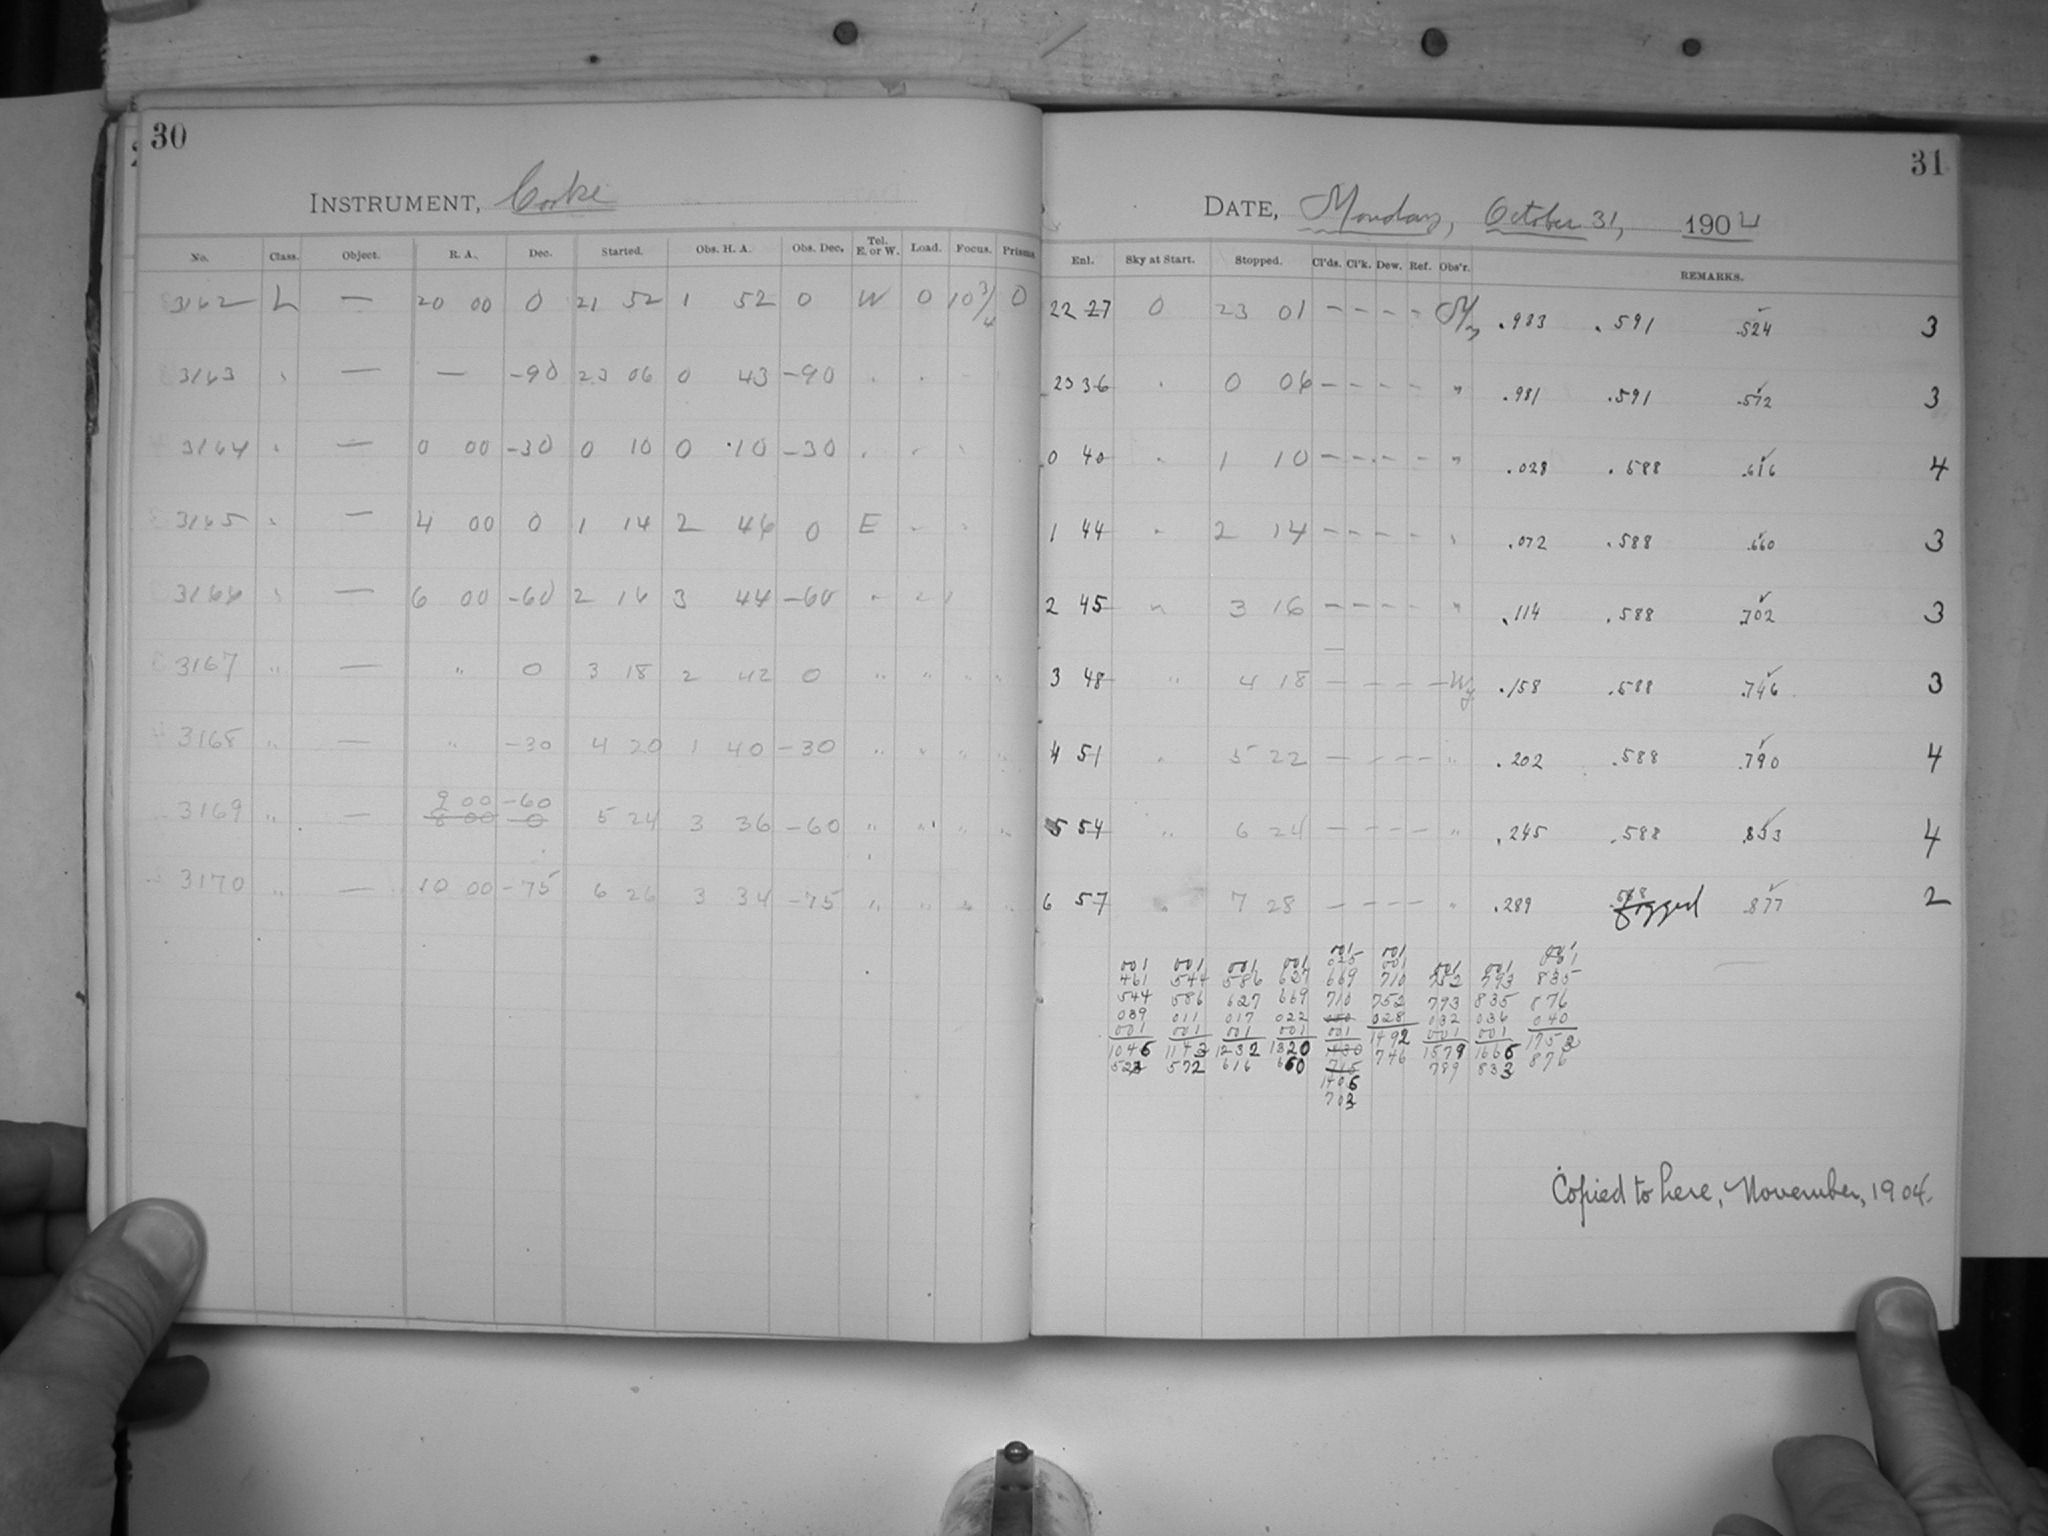 30
INSTRUMENT, Cooke
No. Class. Object. R. A. Dec. Started. Obs. H. A. Obs. Dec. Tel. E. or W. Load. Focus. Prisms
3162 L — 20 00 0 21 52 1 52 0 W 0 10 3/4 0
3163 " — — -90 23 06 0 43 -90 " "
3164 " — 0 00 -30 0 10 0 10 -30 " " "
3165 " — 4 00 0 1 14 2 46 0 E " "
3166 " — 6 00 -60 2 16 3 44 -60 " " "
3167 " — " 0 3 18 2 42 0 " " " "
3168 " — " -30 4 20 1 40 -30 " " " "
9 00 -60
3169 " — 8 00 0 5 24 3 36 -60 " " " "
3170 " — 10 00 -75 6 26 3 34 -75 " " " "
31
DATE, Monday, October 31, 1904
Enl. Sky at Start. Stopped. Cl'ds. Cl'k. Dew. Ref. Obs'r. REMARKS.
22 27 0 23 01 — — — — .983 .591 .524 3
23 36 " 0 06 — — — — " .981 .591 .572 3
0 40 " 1 10 — — — — " .028 .588 .616 4
1 44 " 2 14 — — — — " .072 .588 .660 3
2 45 " 3 16 — — — — " .114 .588 .702 3
3 48 " 4 18 — — — — Wy .158 .588 .746 3
4 51 " 5 22 — — — — " .202 .588 .790 4
5 54 " 6 24 — — — — " .245 .588 .833 4
6 57 " 7 28 — — — — " .289 .588 fogged .877 2
001 001 001 001 001 001 001 001 001
461 544 586 627 669 710 752 793 835
544 586 627 669 710 752 793 835 876
039 011 017 022 028 032 036 040
001 001 001 001 001 1492 001 001 1753
1046 1143 1232 1320 1430 746 1579 1666 876
523 572 616 660 715 789 833
1406
703
Copied to here, November, 1904.